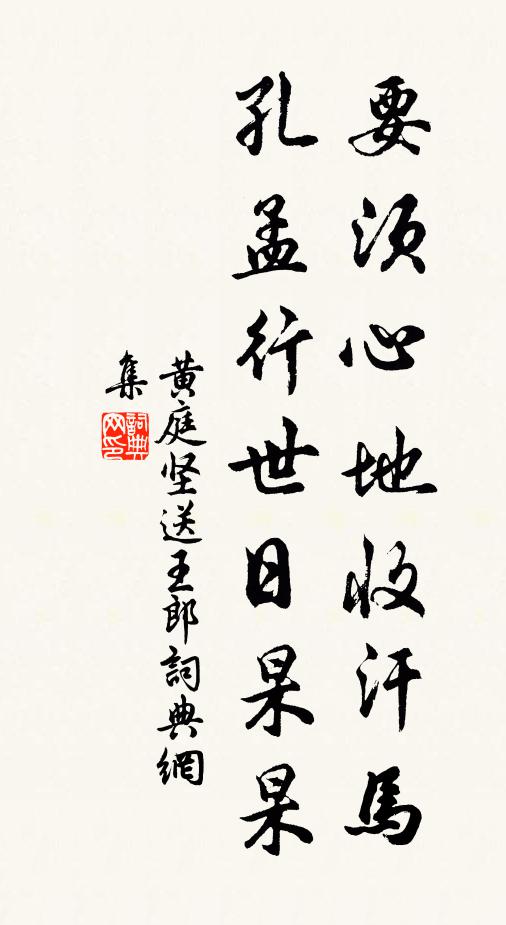 要须心地收汗馬
孔孟行世日杲杲
黄庭坚送王郎詞典網
集
詞典
网印